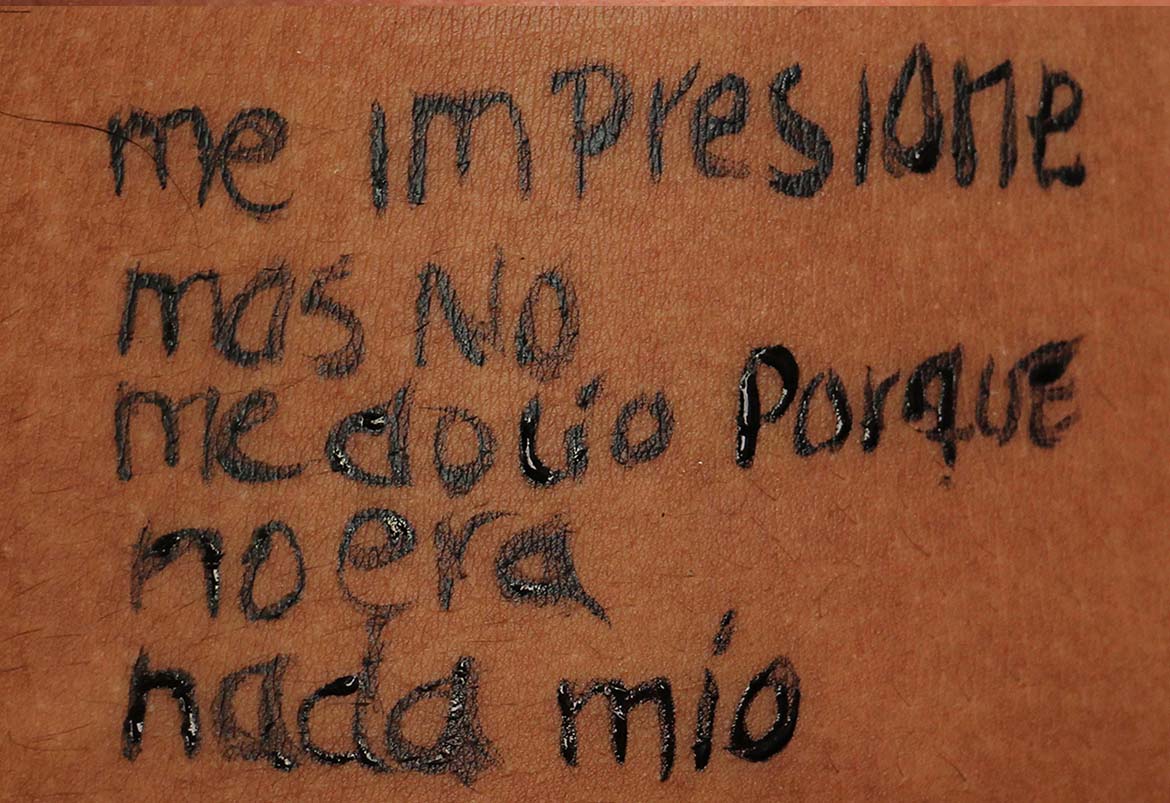 me impresione
mas No
me dolío Porque
no era
nada mío